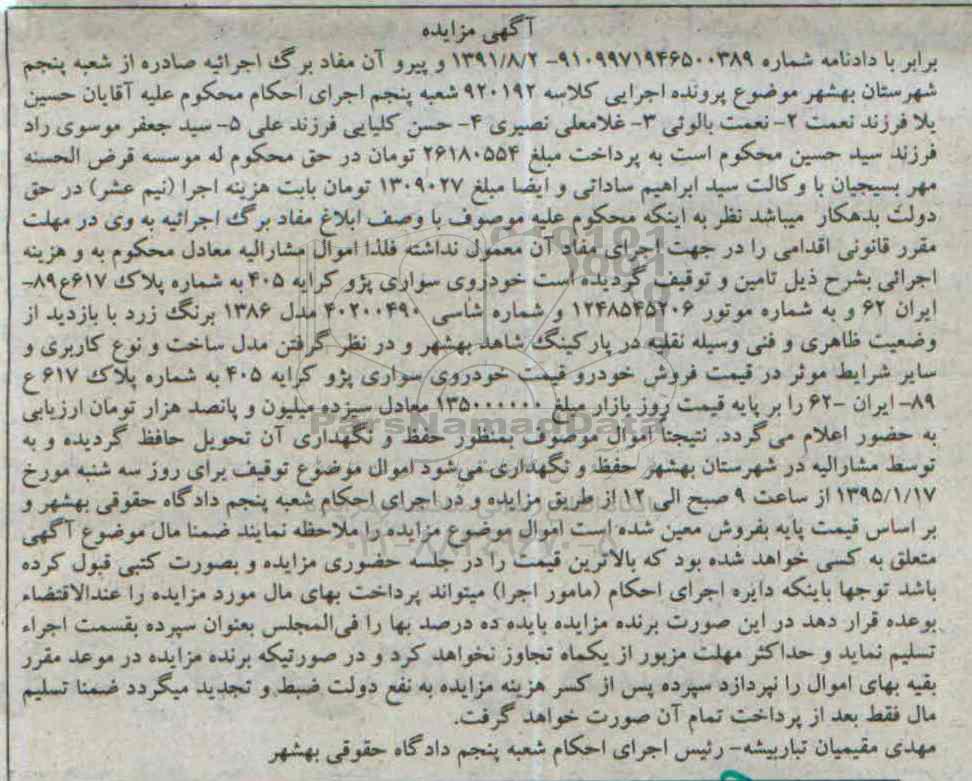 آگهی مزایده
برابر با دادنامه شماره ۹۱۰۹۹۷۱۹۴۶۵۰۰۳۸۹- ۱۳۹۱/۸/۲ و پیرو آن مفاد برگ اجرائیه صادره از شعبه پنجم
شهرستان بهشهر موضوع پرونده اجرایی کلاسه ۹۲۰۱۹۲ شعبه پنجم اجرای احکام محکوم علیه آقایان حسین
یلا فرزند نعمت ۲- نعمت بالوئی ۳- غلامعلی نصیری ۴- حسن کلیایی فرزند علی ۵- سید جعفر موسوی راد
فرزند سید حسین محکوم است به پرداخت مبلغ ۲۶۱۸۰۵۵۴ تومان در حق محکوم له موسسه قرض الحسنه
مهر بسیجیان با وکالت سید ابراهیم ساداتی و ایضا مبلغ ۱۳۰۹۰۲۷ تومان بابت هزینه اجرا (نیم عشر) در حق
دولت بدهکار میباشد نظر به اینکه محکوم علیه موصوف با وصف ابلاغ مفاد برگ اجرائیه به وی در مهلت
مقرر قانونی اقدامی را در جهت اجرای مفاد آن معمول نداشته فلذا اموال مشارالیه معادل محکوم به و هزینه
اجرائی بشرح ذیل تامین و توقیف گردیده است خودروی سواری پژو کرایه ۴۰۵ به شماره پلاک ۶۱۷ع۸۹-
ایران ۶۲ و به شماره موتور ۱۲۴۸۵۴۵۲۰۶ و شماره شاسی ۴۰۲۰۰۴۹۰ مدل ۱۳۸۶ برنگ زرد با بازدید از
وضعیت ظاهری و فنی وسیله نقلیه در پارکینگ شاهد بهشهر و در نظر گرفتن مدل ساخت و نوع کاربری و
سایر شرایط موثر در قیمت فروش خودرو قیمت خودروی سواری پژو کرایه ۴۰۵ به شماره پلاک ۶۱۷ ع
۸۹- ایران -۶۲ را بر پایه قیمت روز بازار مبلغ ۱۳۵۰۰۰۰۰۰ معادل سیزده میلیون و پانصد هزار تومان ارزیابی
به حضور اعلام می‌گردد. نتیجتا اموال موصوف بمنظور حفظ و نگهداری آن تحویل حافظ گردیده و به
توسط مشارالیه در شهرستان بهشهر حفظ و نگهداری می‌شود اموال موضوع توقیف برای روز سه شنبه مورخ
۱۳۹۵/۱/۱۷ از ساعت ۹ صبح الی ۱۲ از طریق مزایده و در اجرای احکام شعبه پنجم دادگاه حقوقی بهشهر و
بر اساس قیمت پایه بفروش معین شده است اموال موضوع مزایده را ملاحظه نمایند ضمنا مال موضوع آگهی
متعلق به کسی خواهد شده بود که بالاترین قیمت را در جلسه حضوری مزایده و بصورت کتبی قبول کرده
باشد توجها باینکه دایره اجرای احکام (مامور اجرا) میتواند پرداخت بهای مال مورد مزایده را عندالاقتضاء
بوعده قرار دهد در این صورت برنده مزایده بایده ده درصد بها را فی‌المجلس بعنوان سپرده بقسمت اجراء
تسلیم نماید و حداکثر مهلت مزبور از یکماه تجاوز نخواهد کرد و در صورتیکه برنده مزایده در موعد مقرر
بقیه بهای اموال را نپردازد سپرده پس از کسر هزینه مزایده به نفع دولت ضبط و تجدید میگردد ضمنا تسلیم
مال فقط بعد از پرداخت تمام آن صورت خواهد گرفت.
مهدی مقیمیان تباربیشه- رئیس اجرای احکام شعبه پنجم دادگاه حقوقی بهشهر
ParsNamadData